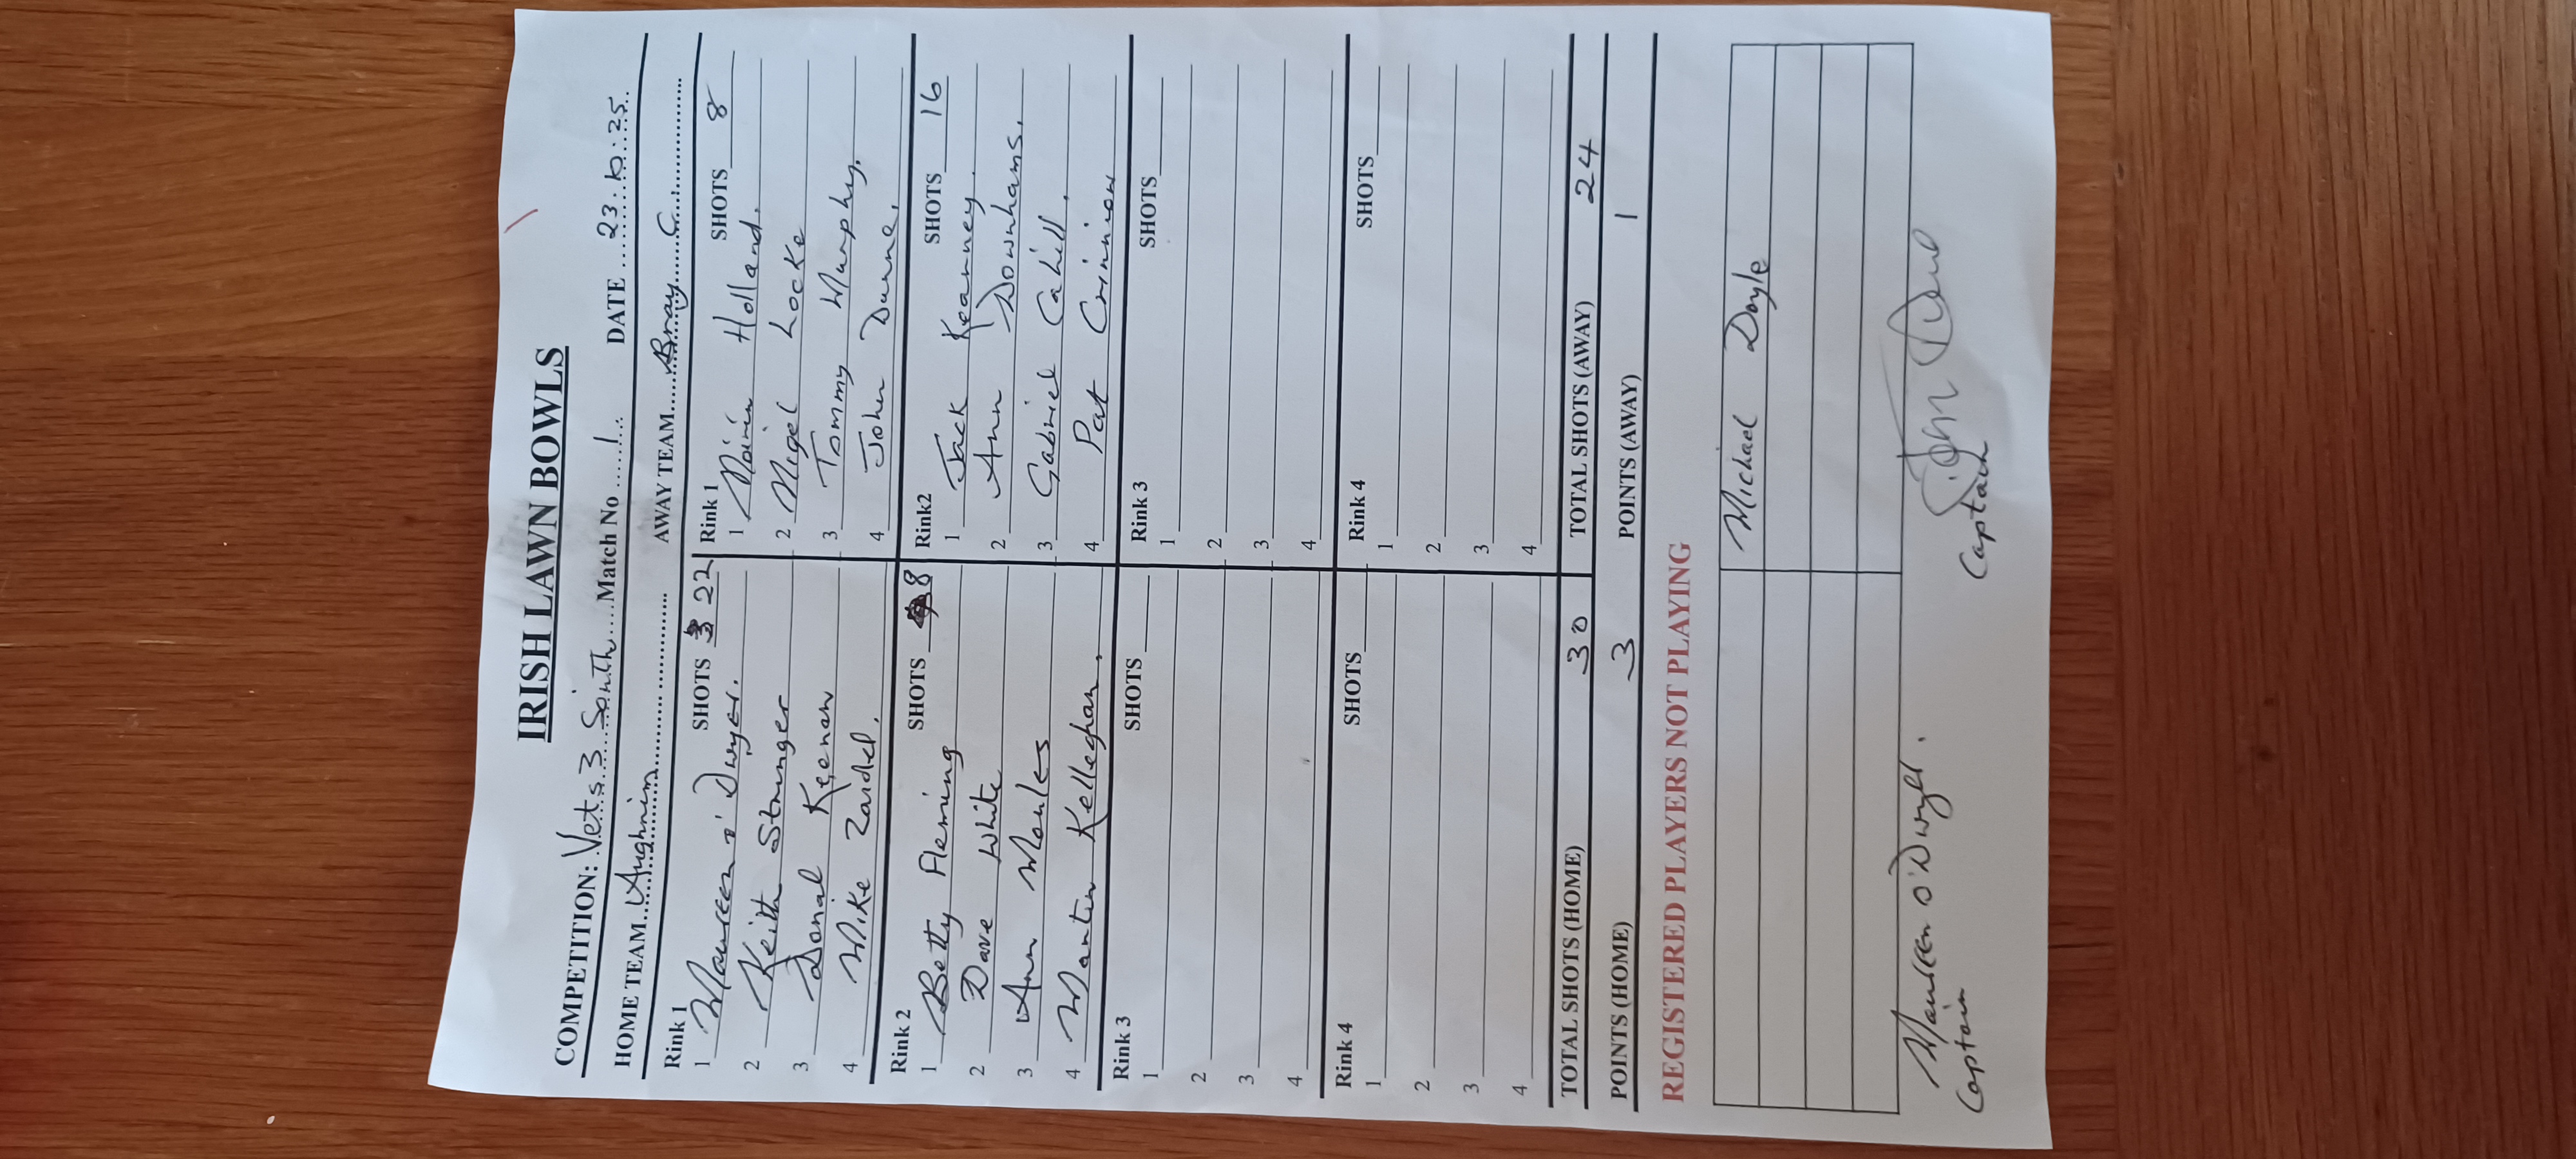 IRISH LAWN BOWLS
COMPETITION: Vets 3 South Match No 1 DATE 23.10.25
HOME TEAM Aughrim AWAY TEAM Bray C
Rink 1 SHOTS 22 Rink 1 SHOTS 8
1 Maureen O'Dwyer. 1 Máirín Holland.
2 Keith Stringer 2 Nigel Locke
3 Donal Keenan 3 Tommy Murphy.
4 Mike Zaidel. 4 John Dunne.
Rink 2 SHOTS 8 Rink2 SHOTS 16
1 Betty Fleming 1 Jack Keanney.
2 Dave White 2 Ann Downhams.
3 Ann Moules 3 Gabriel Cahill.
4 Martin Kelleghan. 4 Pat Crinnion
Rink 3 SHOTS Rink 3 SHOTS
1 1
2 2
3 3
4 4
Rink 4 SHOTS Rink 4 SHOTS
1 1
2 2
3 3
4 4
TOTAL SHOTS (HOME) 30 TOTAL SHOTS (AWAY) 24
POINTS (HOME) 3 POINTS (AWAY) 1
REGISTERED PLAYERS NOT PLAYING
Michael Doyle
Maureen O'Dwyer. John
Captain Captain